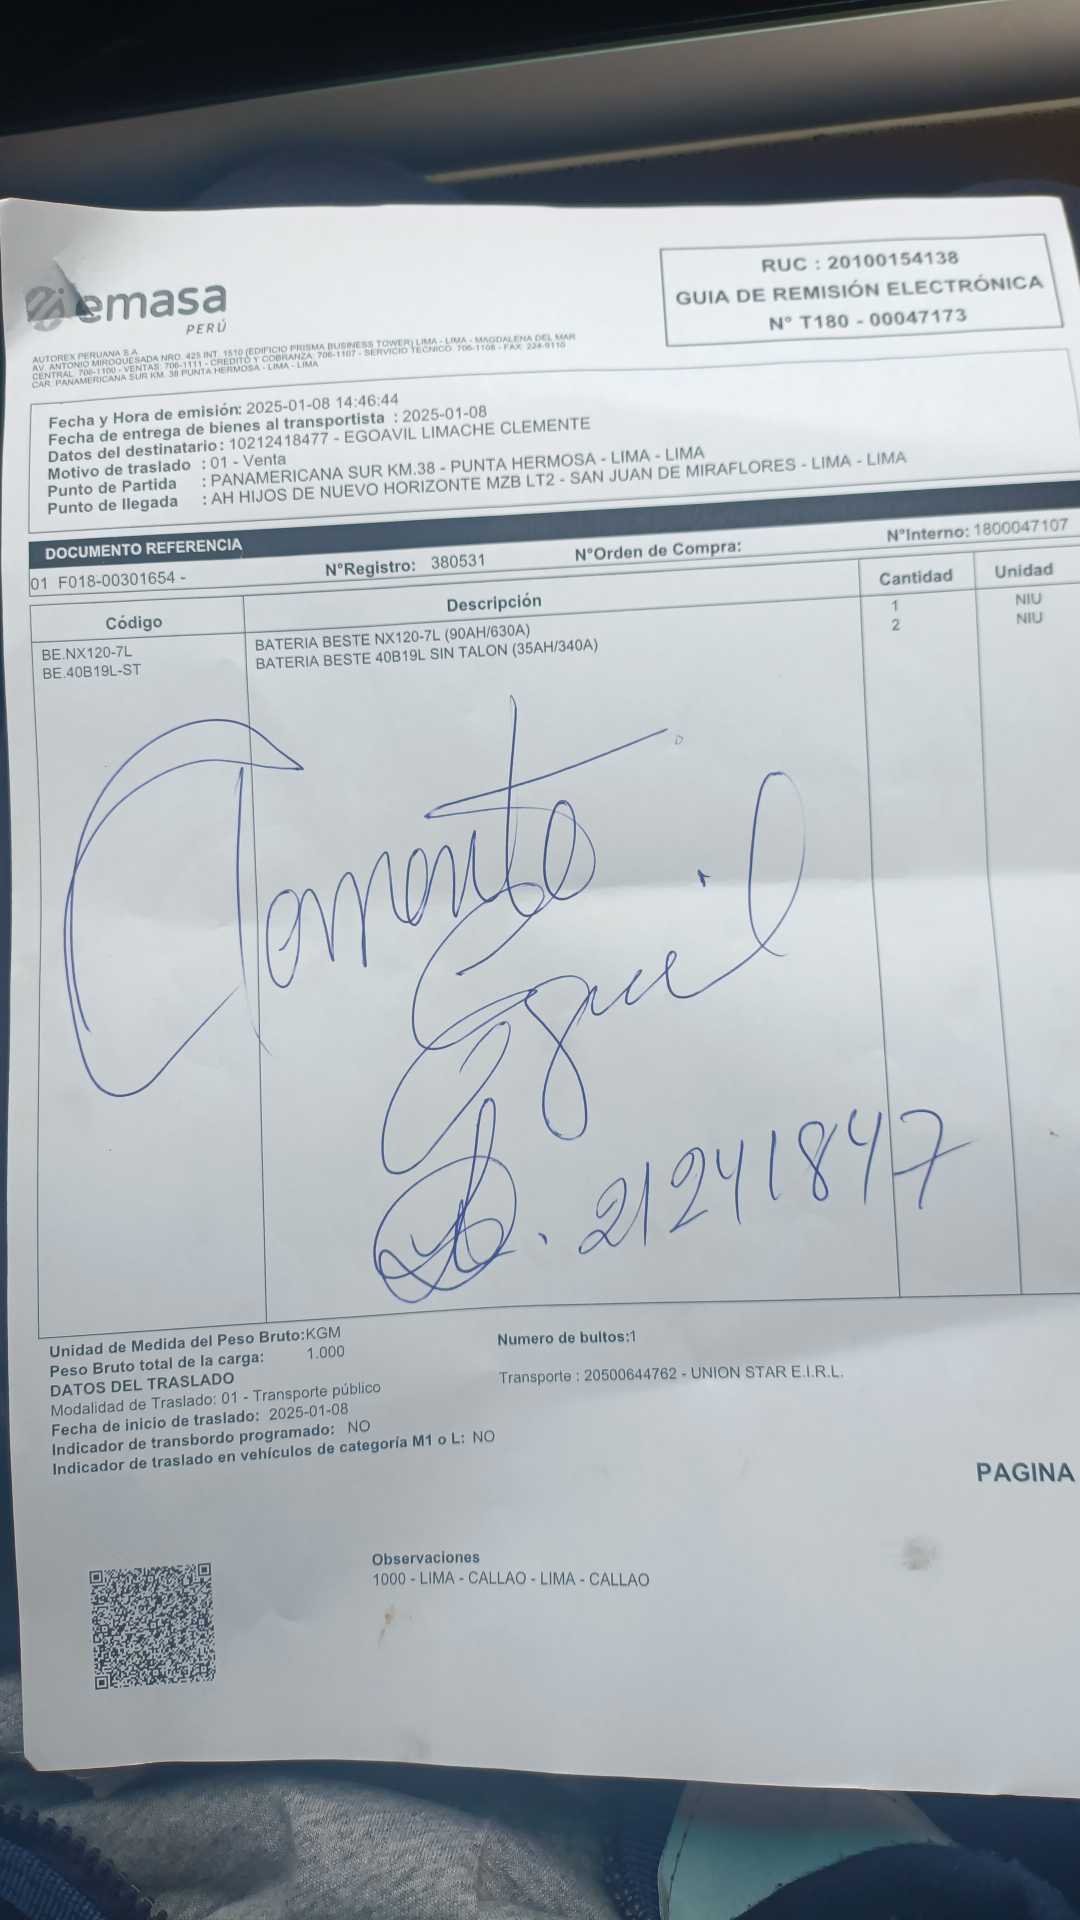 emasa
PERÚ
RUC : 20100154138
GUIA DE REMISIÓN ELECTRÓNICA
N° T180 - 00047173
AUTOREX PERUANA S.A
AV. ANTONIO MIROQUESADA NRO. 425 INT. 1510 (EDIFICIO PRISMA BUSINESS TOWER) LIMA - LIMA - MAGDALENA DEL MAR
CENTRAL: 706-1100 - VENTAS: 706-1111 - CREDITO Y COBRANZA: 706-1107 - SERVICIO TECNICO: 706-1108 - FAX: 224-9110
CAR. PANAMERICANA SUR KM. 38 PUNTA HERMOSA - LIMA - LIMA
Fecha y Hora de emisión: 2025-01-08 14:46:44
Fecha de entrega de bienes al transportista : 2025-01-08
Datos del destinatario : 10212418477 - EGOAVIL LIMACHE CLEMENTE
Motivo de traslado : 01 - Venta
Punto de Partida : PANAMERICANA SUR KM.38 - PUNTA HERMOSA - LIMA - LIMA
Punto de llegada : AH HIJOS DE NUEVO HORIZONTE MZB LT2 - SAN JUAN DE MIRAFLORES - LIMA - LIMA
DOCUMENTO REFERENCIA
01 F018-00301654 - N°Registro: 380531 N°Orden de Compra: N°Interno: 1800047107
Código Descripción Cantidad Unidad
BE.NX120-7L BATERIA BESTE NX120-7L (90AH/630A) 1 NIU
BE.40B19L-ST BATERIA BESTE 40B19L SIN TALON (35AH/340A) 2 NIU
Clemente
21241847
Unidad de Medida del Peso Bruto:KGM Numero de bultos:1
Peso Bruto total de la carga: 1.000
DATOS DEL TRASLADO Transporte : 20500644762 - UNION STAR E.I.R.L.
Modalidad de Traslado: 01 - Transporte público
Fecha de inicio de traslado: 2025-01-08
Indicador de transbordo programado: NO
Indicador de traslado en vehículos de categoría M1 o L: NO
PAGINA
Observaciones
1000 - LIMA - CALLAO - LIMA - CALLAO